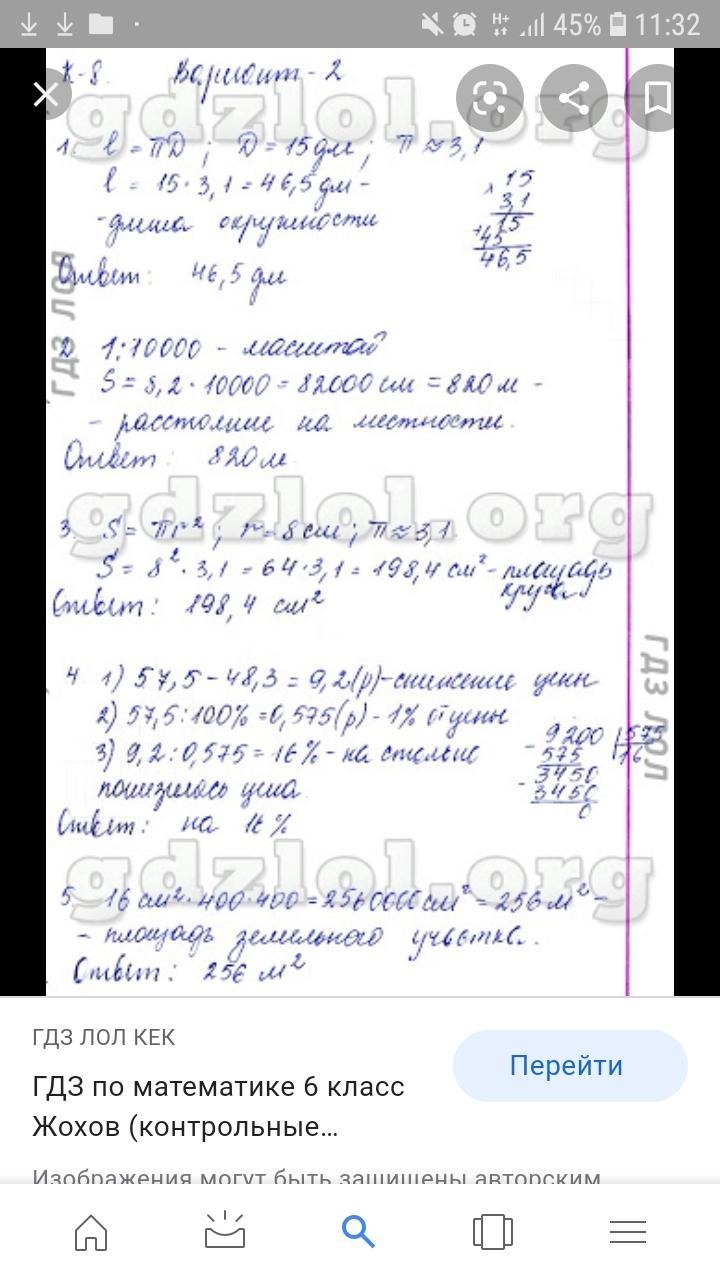 45% 11:32
К-8. Вариант - 2
gdzlol.org
1. l = πD ; D = 15 дм ; π ≈ 3,1
l = 15 · 3,1 = 46,5 дм -
- длина окружности
Ответ: 46,5 дм
× 15
3,1
15
+45
46,5
ГДЗ ЛОЛ
2. 1:10000 - масштаб
S = 8,2 · 10000 = 82000 см = 820 м -
- расстояние на местности.
Ответ: 820 м
gdzlol.org
3. S = πr² ; r = 8 см ; π ≈ 3,1
S = 8² · 3,1 = 64 · 3,1 = 198,4 см² - площадь
круга
Ответ: 198,4 см²
4. 1) 57,5 - 48,3 = 9,2 (р) - снижение цены
2) 57,5 : 100% = 0,575 (р) - 1% от цены
3) 9,2 : 0,575 = 16% - на столько
понизилась цена
Ответ: на 16%
9200 | 575
- 575 16
3450
- 3450
0
ГДЗ ЛОЛ
gdzlol.org
5. 16 см² · 400 · 400 = 2560000 см² = 256 м² -
- площадь земельного участка.
Ответ: 256 м²
ГДЗ ЛОЛ КЕК
Перейти
ГДЗ по математике 6 класс
Жохов (контрольные...
Изображения могут быть защищены авторским